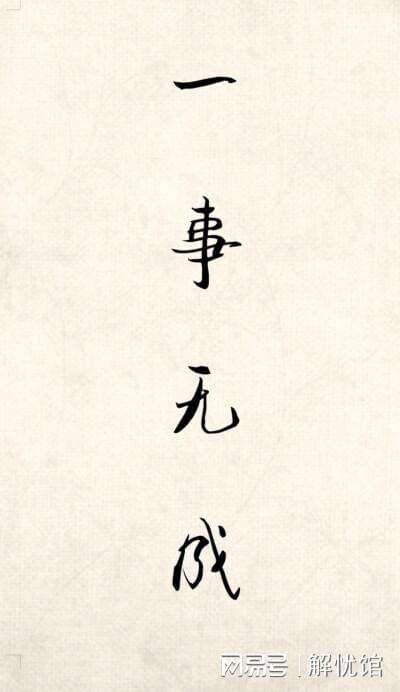 一事无成
网易号 | 解忧馆